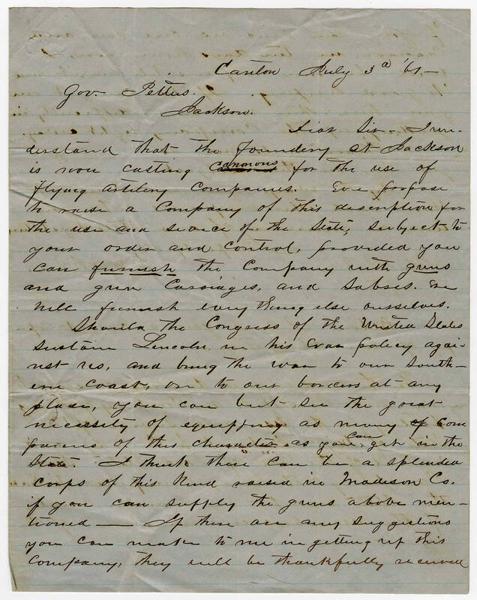 Canton July 3d '61-
Gov- Pettus.
Jackson.
Dear Sir- I un-
derstand that the foundery at Jackson
is now casting canonous for the use of
flying artilery companies. We propose
to raise a company of this description for
the use and service of the State, subject to
your order and control, provided you
can furnish the company with guns
and gun carriages, and sabres. We
will furnish every thing else ourselves.
Should the Congress of the United States
sustain Lincoln in his war policy agai-
nst us, and bring the war to our South-
ern coast, or to our borders at any
place, you can but see the great
necessity of equipping as many of com
panies of this character as you can get in the
State. I think there can be a splended
corps of this kind raised in Madison Co.
if you can supply the guns above men-
tioned — If there are any suggetions
you can make to me in getting up this
company, they will be thankfully received